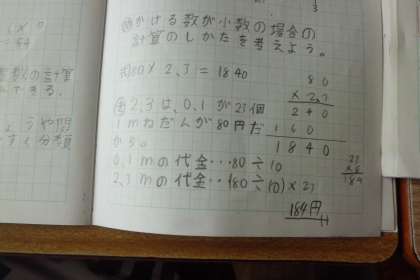 かける数が小数の場合の
計算のしかたを考えよう。
80 × 2,3 = 1840
80
× 2,3
240
160
1840
2,3は、0,1が23個
1mねだんが80円だ
から。
0,1mの代金…80÷10
2,3mの代金…(80÷10)×23
23
× 8
184
184円
数の計算
できる。
うや問
分類
1
3